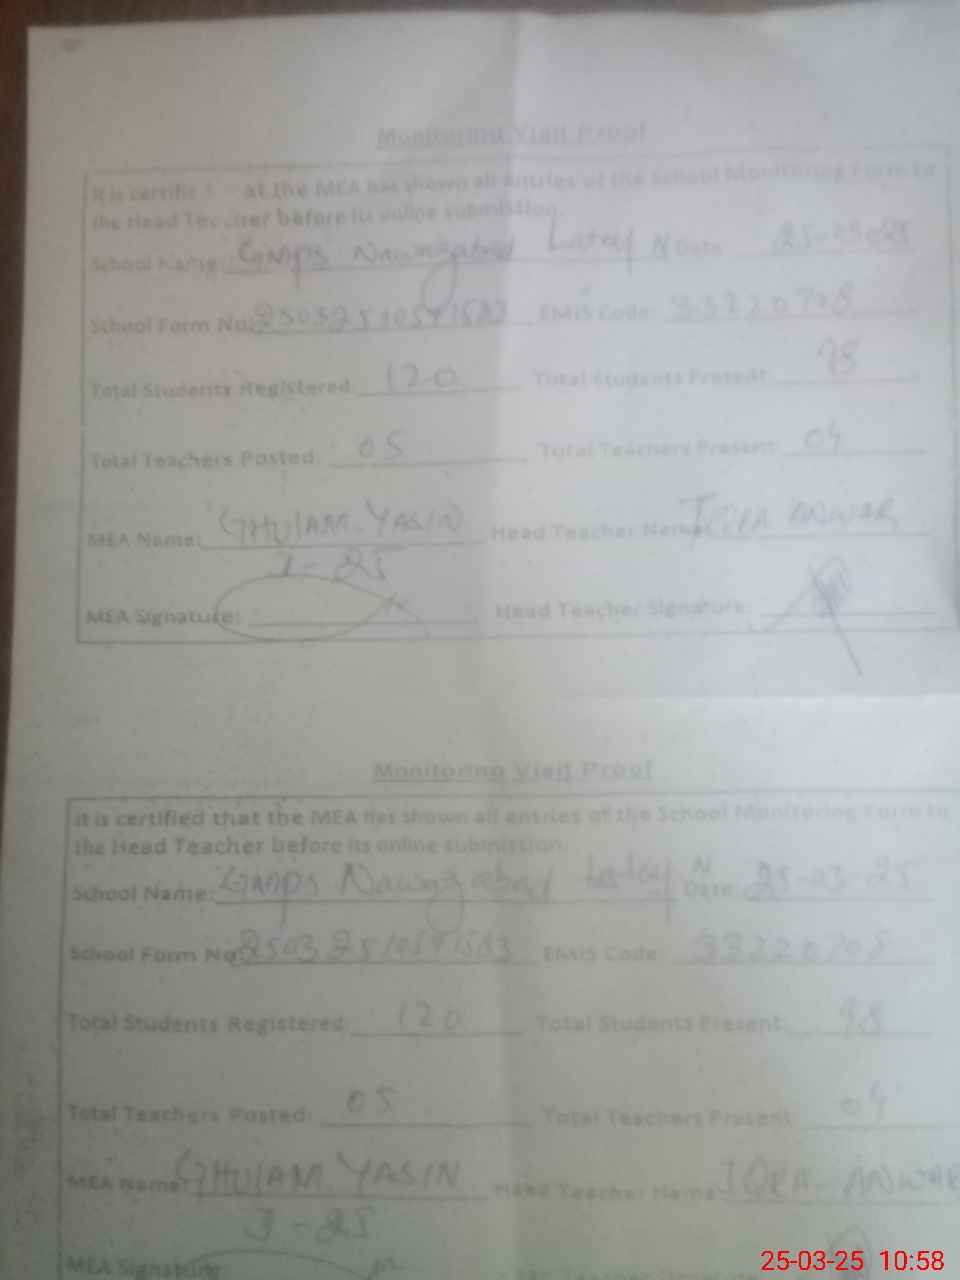 Monitoring Visit Proof
It is certifie at the MEA has shown all entries of the School Monitoring Form to
the Head Teacher before its online submission.
School Name: GMPS Nawazabad N Date 25-03-25
School Form No: EMIS Code: 33220708
Total Students Registered: 120 Total Students Present: 98
Total Teachers Posted: 05 Total Teachers Present: 04
MEA Name: GHULAM YASIN Head Teacher Name: IQRA ANWAR
MEA Signature: Head Teacher Signature:
Monitoring Visit Proof
It is certified that the MEA has shown all entries of the School Monitoring Form to
the Head Teacher before its online submission.
School Name: GMPS Nawazabad N Date: 25-03-25
School Form No: EMIS Code: 33220708
Total Students Registered: 120 Total Students Present: 98
Total Teachers Posted: 05 Total Teachers Present: 04
MEA Name: GHULAM YASIN Head Teacher Name: IQRA ANWAR
3-25
MEA Signature
25-03-25 10:58